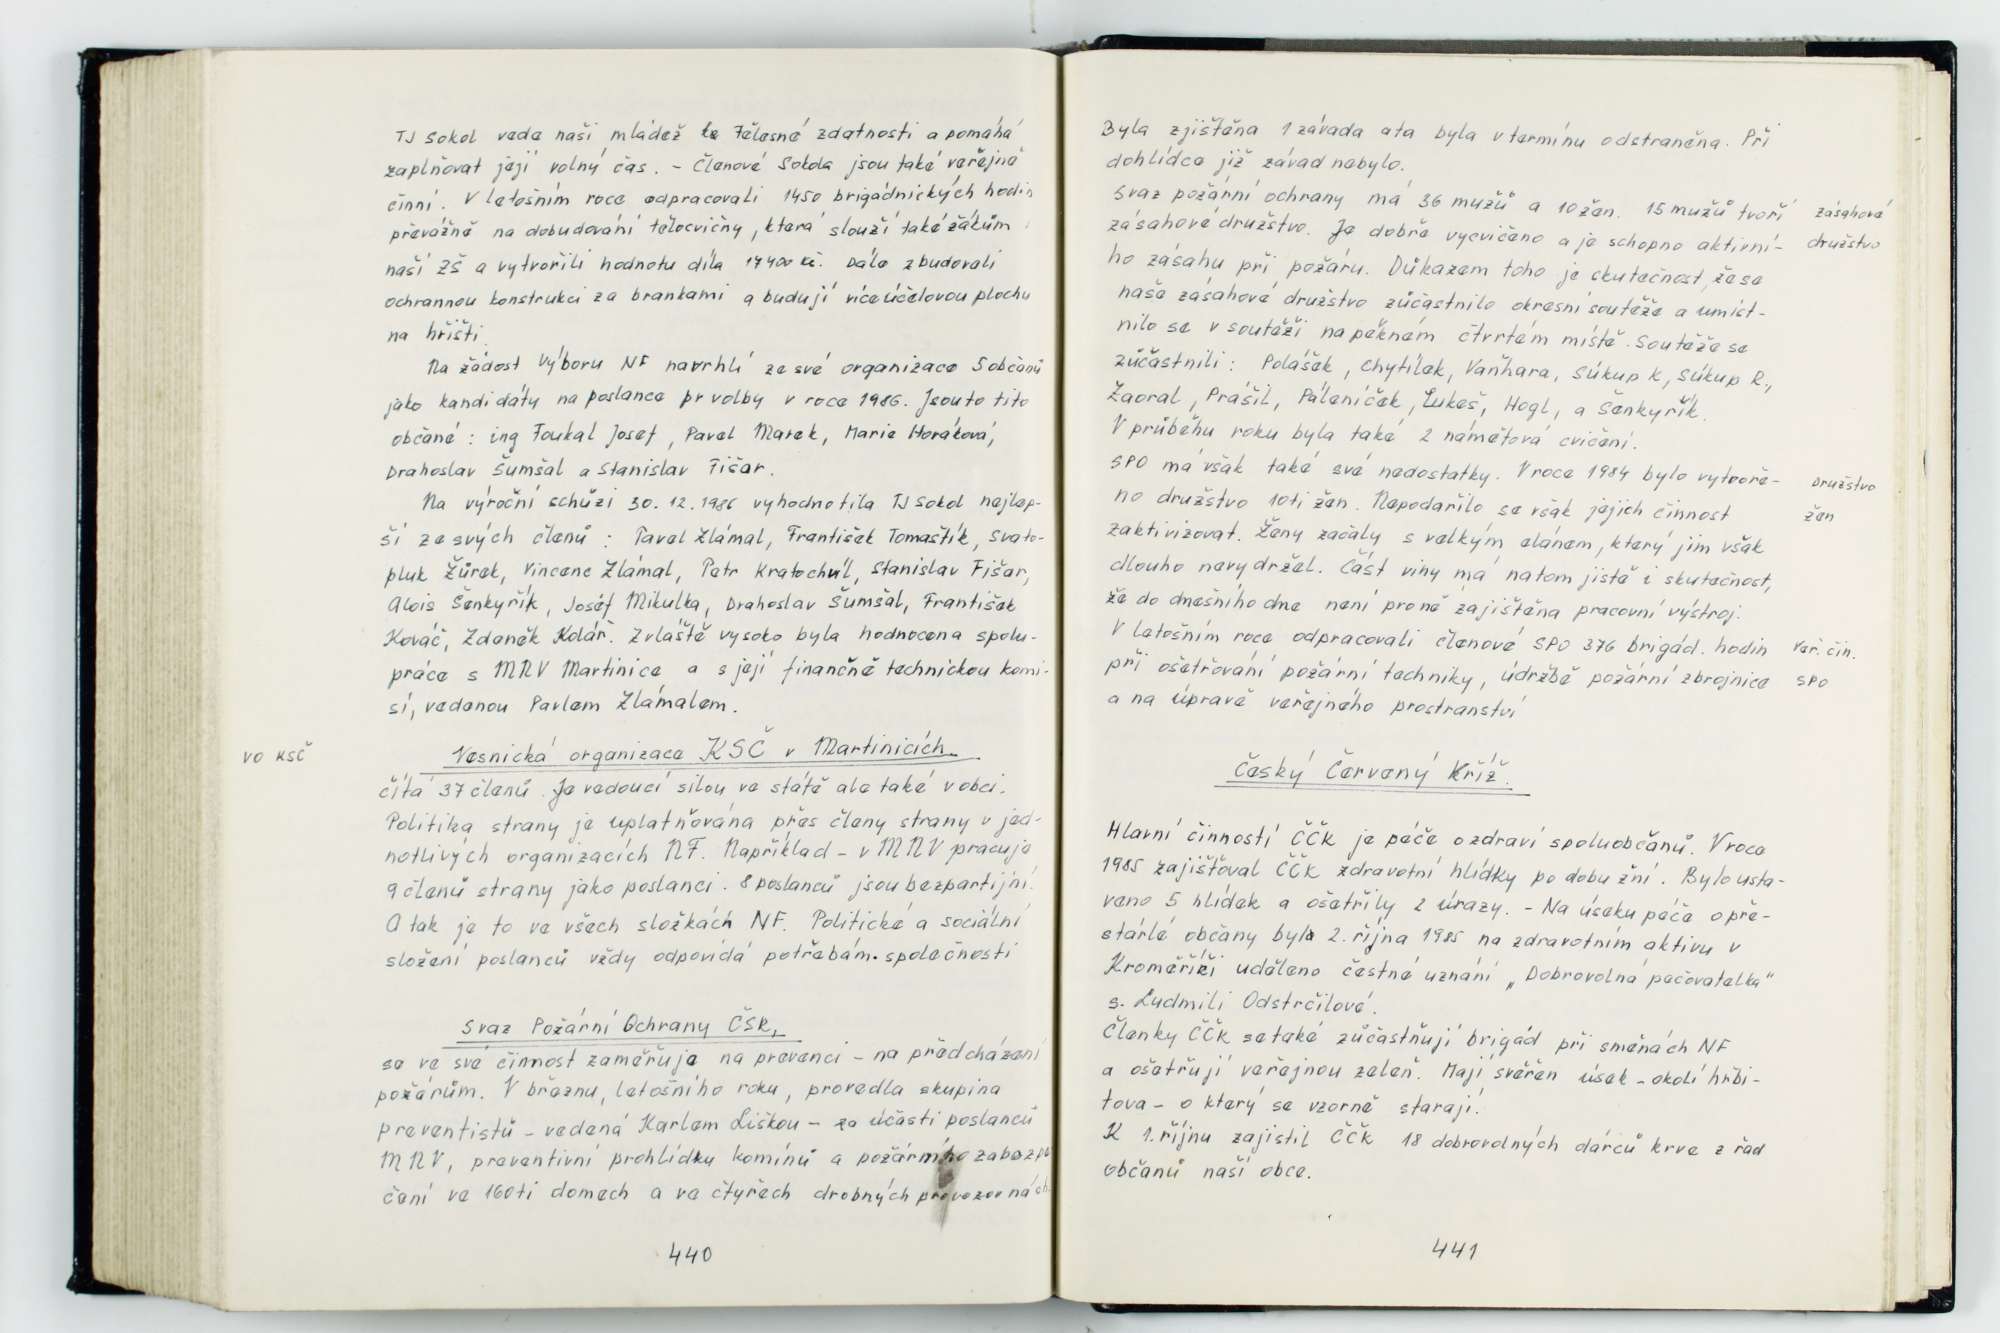 TJ Sokol vede naši mládež ke tělesné zdatnosti a pomáhá
zaplňovat její volný čas. – Členové Sokola jsou také veřejně
činní. V letošním roce odpracovali 1450 brigádnických hodin
převážně na dobudování tělocvičny, která slouží také žákům
naší ZŠ a vytvořili hodnotu díla 17400 kč. Dále zbudovali
ochrannou konstrukci za brankami a budují víceúčelovou plochu
na hřišti.
Na žádost Výboru NF navrhli ze své organizace 5 občanů
jako kandidáty na poslance pr volby v roce 1986. Jsou to tito
občané: ing Foukal Josef, Pavel Marek, Marie Horáková,
Drahoslav Šumšal a Stanislav Fišar.
Na výroční schůzi 30.12.1986 vyhodnotila TJ Sokol nejlep-
ší ze svých členů: Pavel Zlámal, František Tomaštík, Svato-
pluk Žůrek, Vincenc Zlámal, Petr Kratochvíl, Stanislav Fišar,
Alois Šenkyřík, Joséf Mikulka, Drahoslav Šumšal, František
Kováč, Zdeněk Kolář. Zvláště vysoko byla hodnocena spolu-
práce s MNV Martinice a s její finančně technickou komi-
sí, vedenou Pavlem Zlámalem.
VO KSČ
Vesnická organizace KSČ v Martinicích
čítá 37 členů. Je vedoucí silou ve státě ale také v obci.
Politika strany je uplatňována přes členy strany v jed-
notlivých organizacích NF. Například – v MNV pracuje
9 členů strany jako poslanci. 8 poslanců jsou bezpartijní.
A tak je to ve všech složkách NF. Politické a sociální
složení poslanců vždy odpovídá potřebám společnosti
Svaz Požární Ochrany ČSR,
se ve své činnost zaměřuje na prevenci – na předcházení
požárům. V březnu, letošního roku, provedla skupina
preventistů – vedená Karlem Liškou – za účasti poslanců
MNV, preventivní prohlídku komínů a požárního zabezpe
čení ve 160ti domech a ve čtyřech drobných provozovnách.
440
Byla zjištěna 1 závada a ta byla v termínu odstraněna. Při
dohlídce již závad nebylo.
Svaz požární ochrany má 36 mužů a 10 žen. 15 mužů tvoří
zásahové
zásahové družstvo. Je dobře vycvičeno a je schopno aktivní-
družstvo
ho zásahu při požáru. Důkazem toho je skutečnost, že se
naše zásahové družstvo zůčastnilo okresní soutěže a umíst-
nilo se v soutěži na pěkném čtvrtém místě. Soutěže se
zůčastnili: Polášek, Chytílek, Vaňhara, Súkup K, Súkup R.,
Zaoral, Prášil, Páleníček, Lukeš, Hogl, a Šenkyřík.
V průběhu roku byla také 2 námětová cvičení.
SPO má však také své nedostatky. V roce 1984 bylo vytvoře-
Družstvo
no družstvo 10ti žen. Nepodařilo se však jejich činnost
žen
zaktivizovat. Ženy začaly s velkým elánem, který jim však
dlouho nevydržel. Část viny má na tom jistě i skutečnost,
že do dnešního dne není pro ně zajištěna pracovní výstroj.
V letošním roce odpracovali členové SPO 376 brigád. hodin
Veř. čin.
při ošetřování požární techniky, údržbě požární zbrojnice
SPO
a na úpravě veřejného prostranství
Český Červený Kříž.
Hlavní činností ČČK je péče o zdraví spoluobčanů. V roce
1985 zajišťoval ČČK zdravotní hlídky po dobu žní. Bylo usta-
veno 5 hlídek a ošetřily 2 úrazy. – Na úseku péče o pře-
stárlé občany bylo 2. října 1985 na zdravotním aktivu v
Kroměříži uděleno čestné uznání „Dobrovolná pečovatelka"
s. Ludmili Odstrčilové.
Členky ČČK se také zůčastňují brigád při směnách NF
a ošetřují veřejnou zeleň. Mají svěřen úsek – okolí hřbi-
tova – o který se vzorně starají.
K 1. říjnu zajistil ČČK 18 dobrovolných dárců krve z řad
občanů naší obce.
441